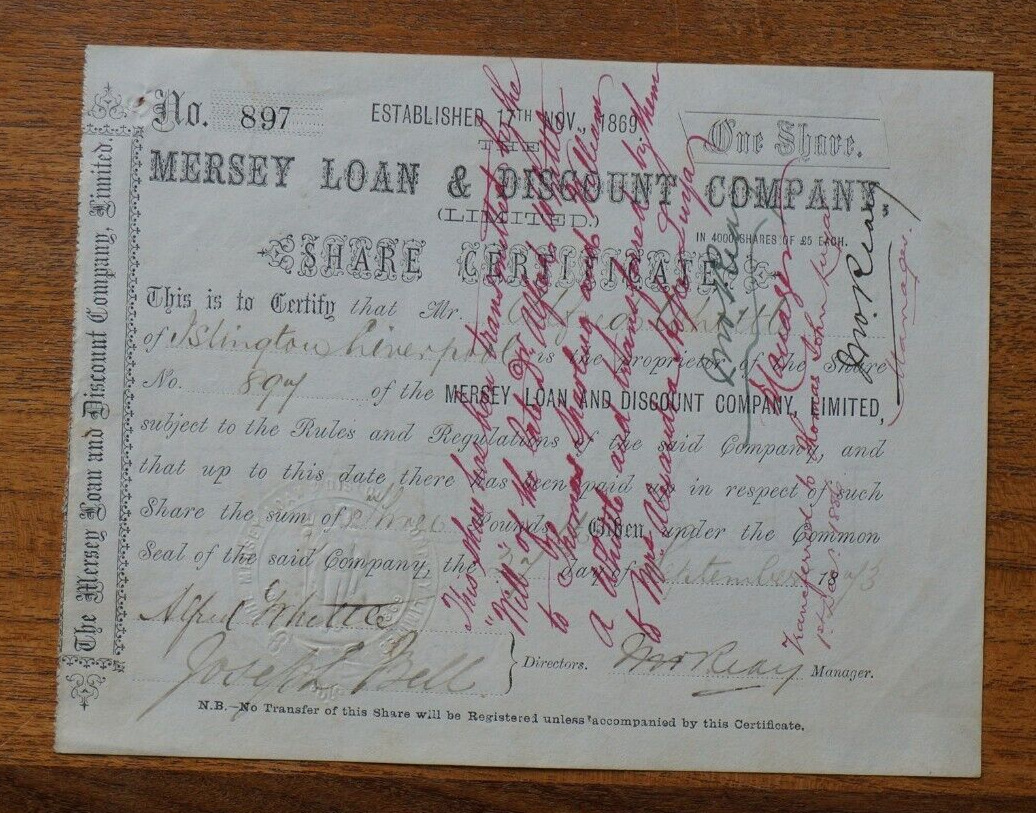 The Mersey Loan and Discount Company, Limited.
No. 897
ESTABLISHED 17TH NOV., 1869
One Share.
THE
MERSEY LOAN & DISCOUNT COMPANY,
(LIMITED.)
IN 4000 SHARES OF £5 EACH.
SHARE CERTIFICATE.
This is to Certify that Mr. Alfred Whittle
of Islington Liverpool is the proprietor of the Share
No. 897 of the MERSEY LOAN AND DISCOUNT COMPANY, LIMITED,
subject to the Rules and Regulations of the said Company, and
that up to this date there has been paid up in respect of such
Share the sum of Three Pounds Given under the Common
Seal of the said Company, the day of September 1873
Alfred Whittle
Joseph Bell
Directors.
Jno. Reay Manager.
N.B.—No Transfer of this Share will be Registered unless accompanied by this Certificate.
This share has been transmitted by the
"Will" of the late Mr Alfred Whittle
to Thomas and William
a Whittle and transferred by them
to Mrs Alexandra
Jno. Reay
Manager
Transferred to Thomas John
1st Decr
Jno. Reay
Manager.